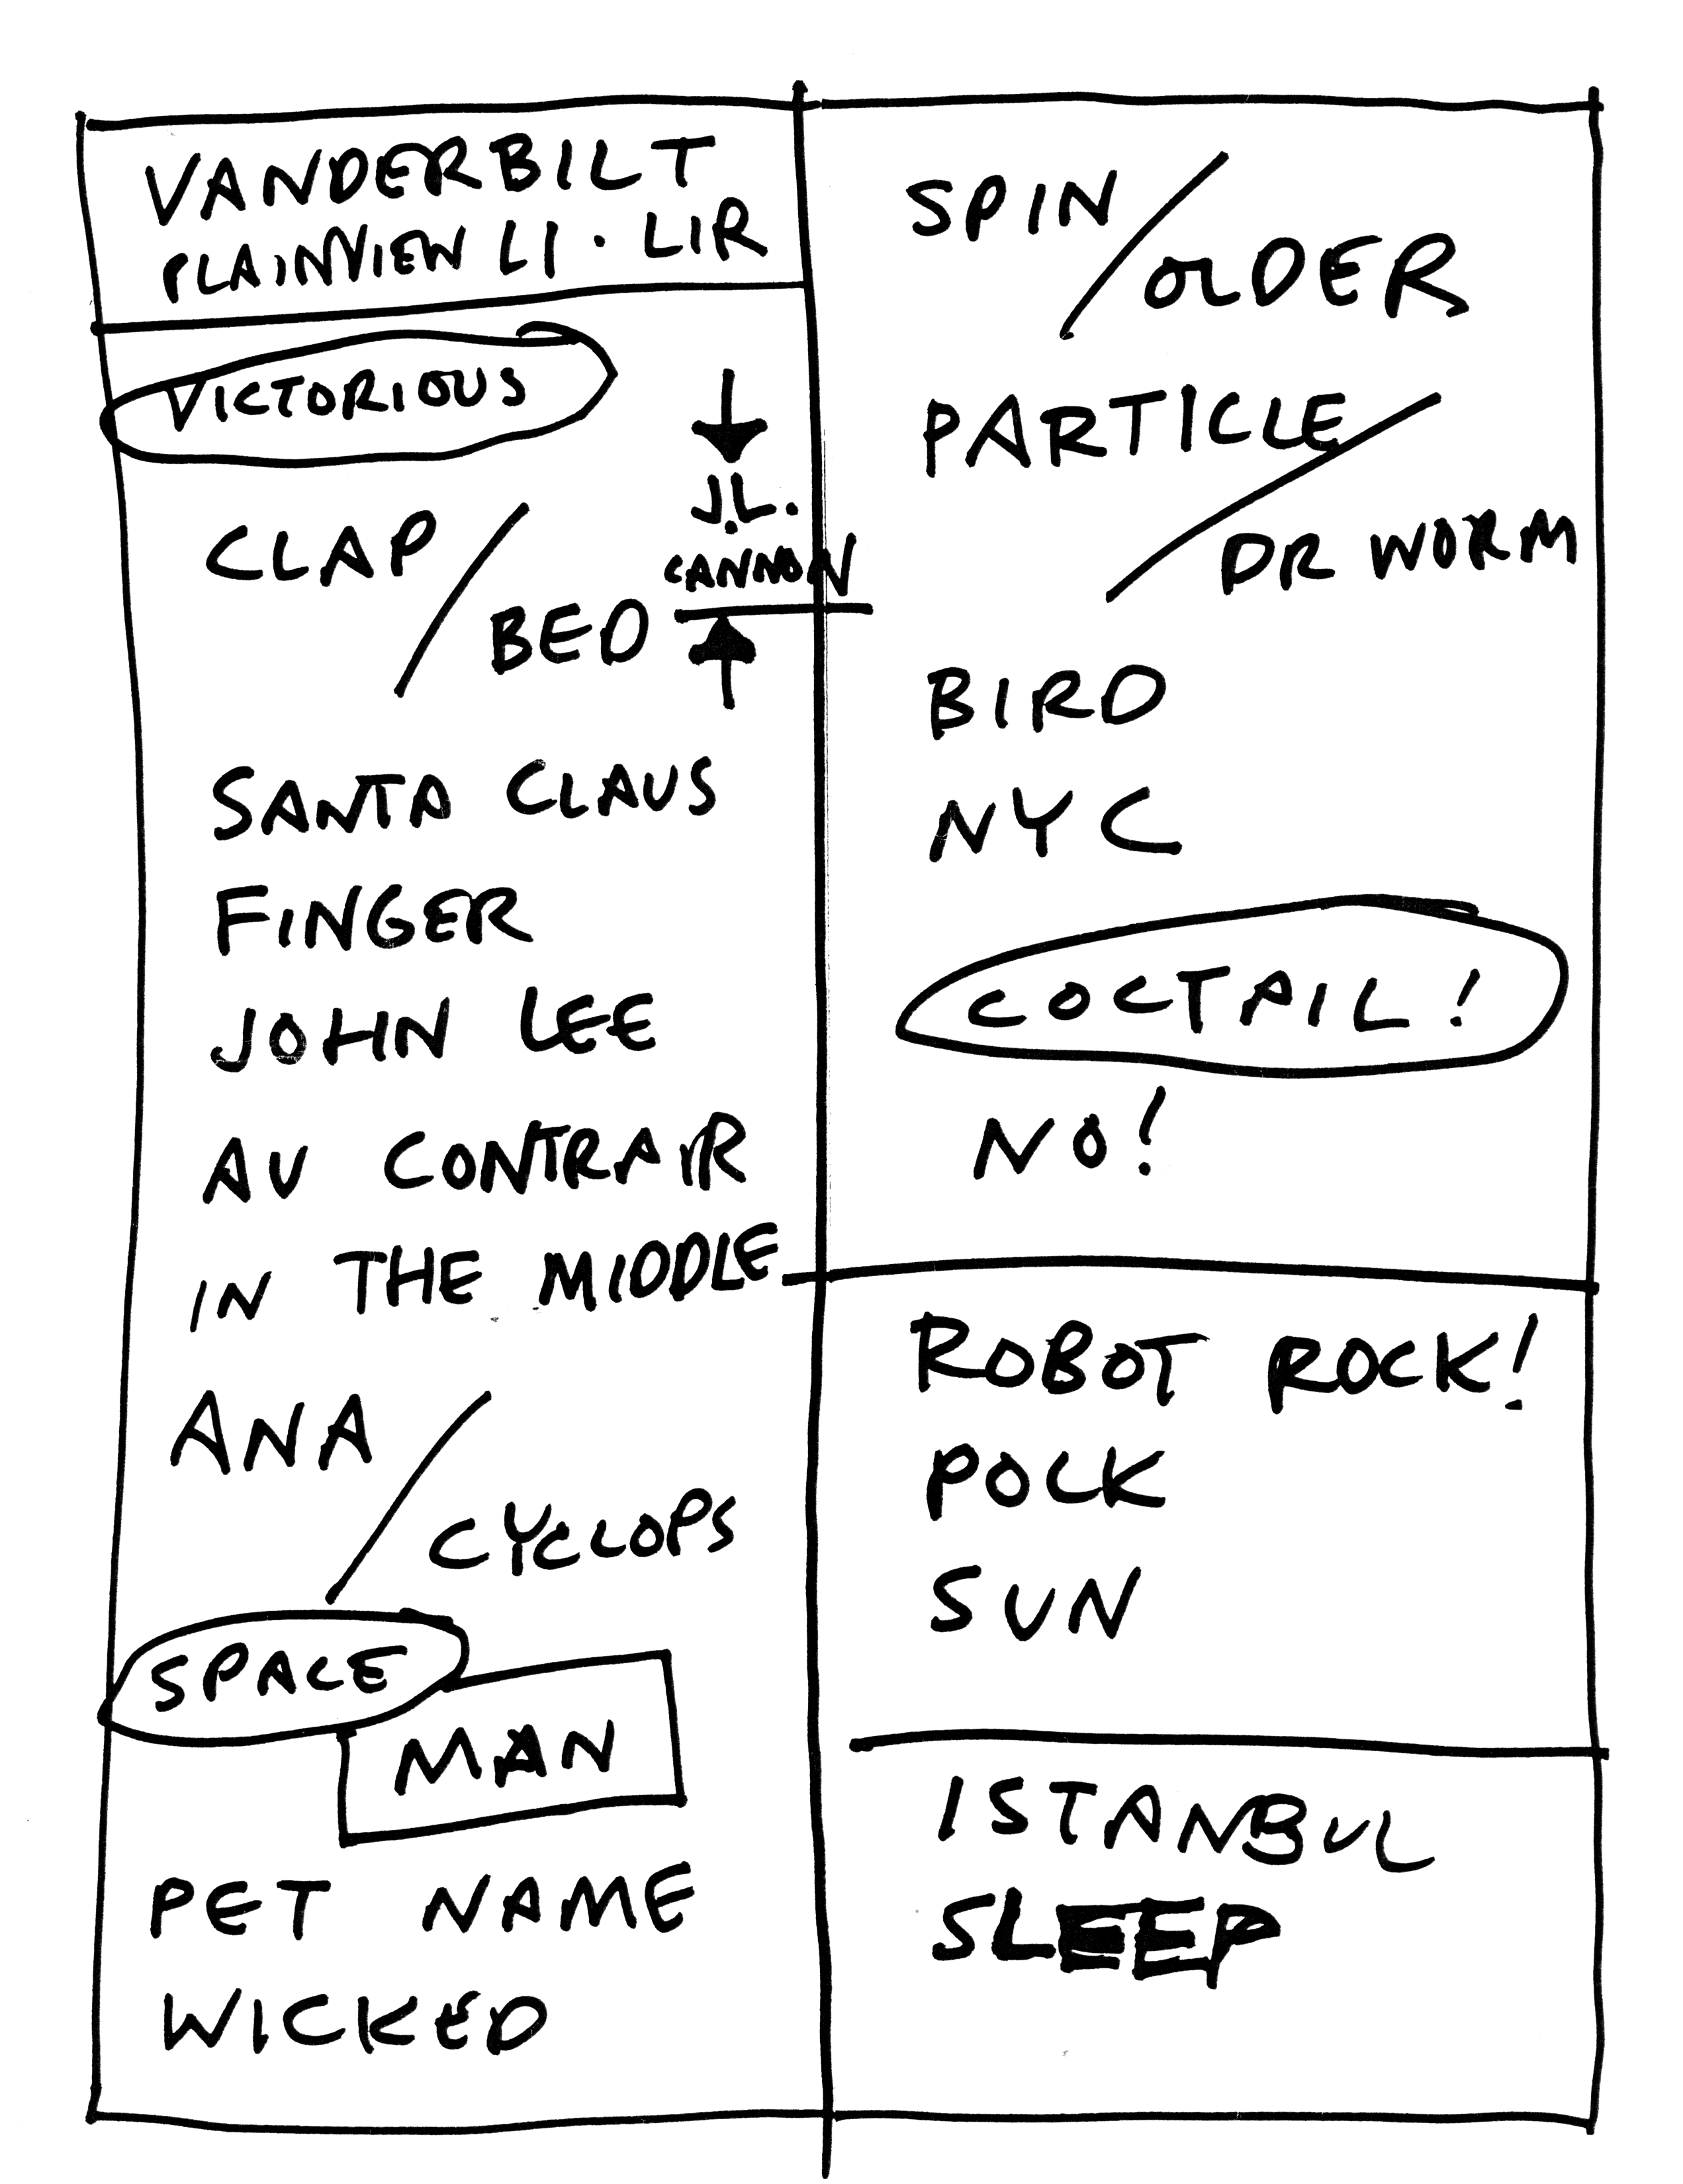 VANDERBILT
PLAINVIEW LI · LIR
VICTORIOUS
CLAP/
BED
J.L.
CANNON
SANTA CLAUS
FINGER
JOHN LEE
AU CONTRAIR
IN THE MIDDLE
ANA/
CYCLOPS
SPACE
MAN
PET NAME
WICKED
SPIN/
OLDER
PARTICLE/
DR WORM
BIRD
NYC
COCTAIL!
NO!
ROBOT ROCK!
POLK
SUN
ISTANBUL
SLEEP